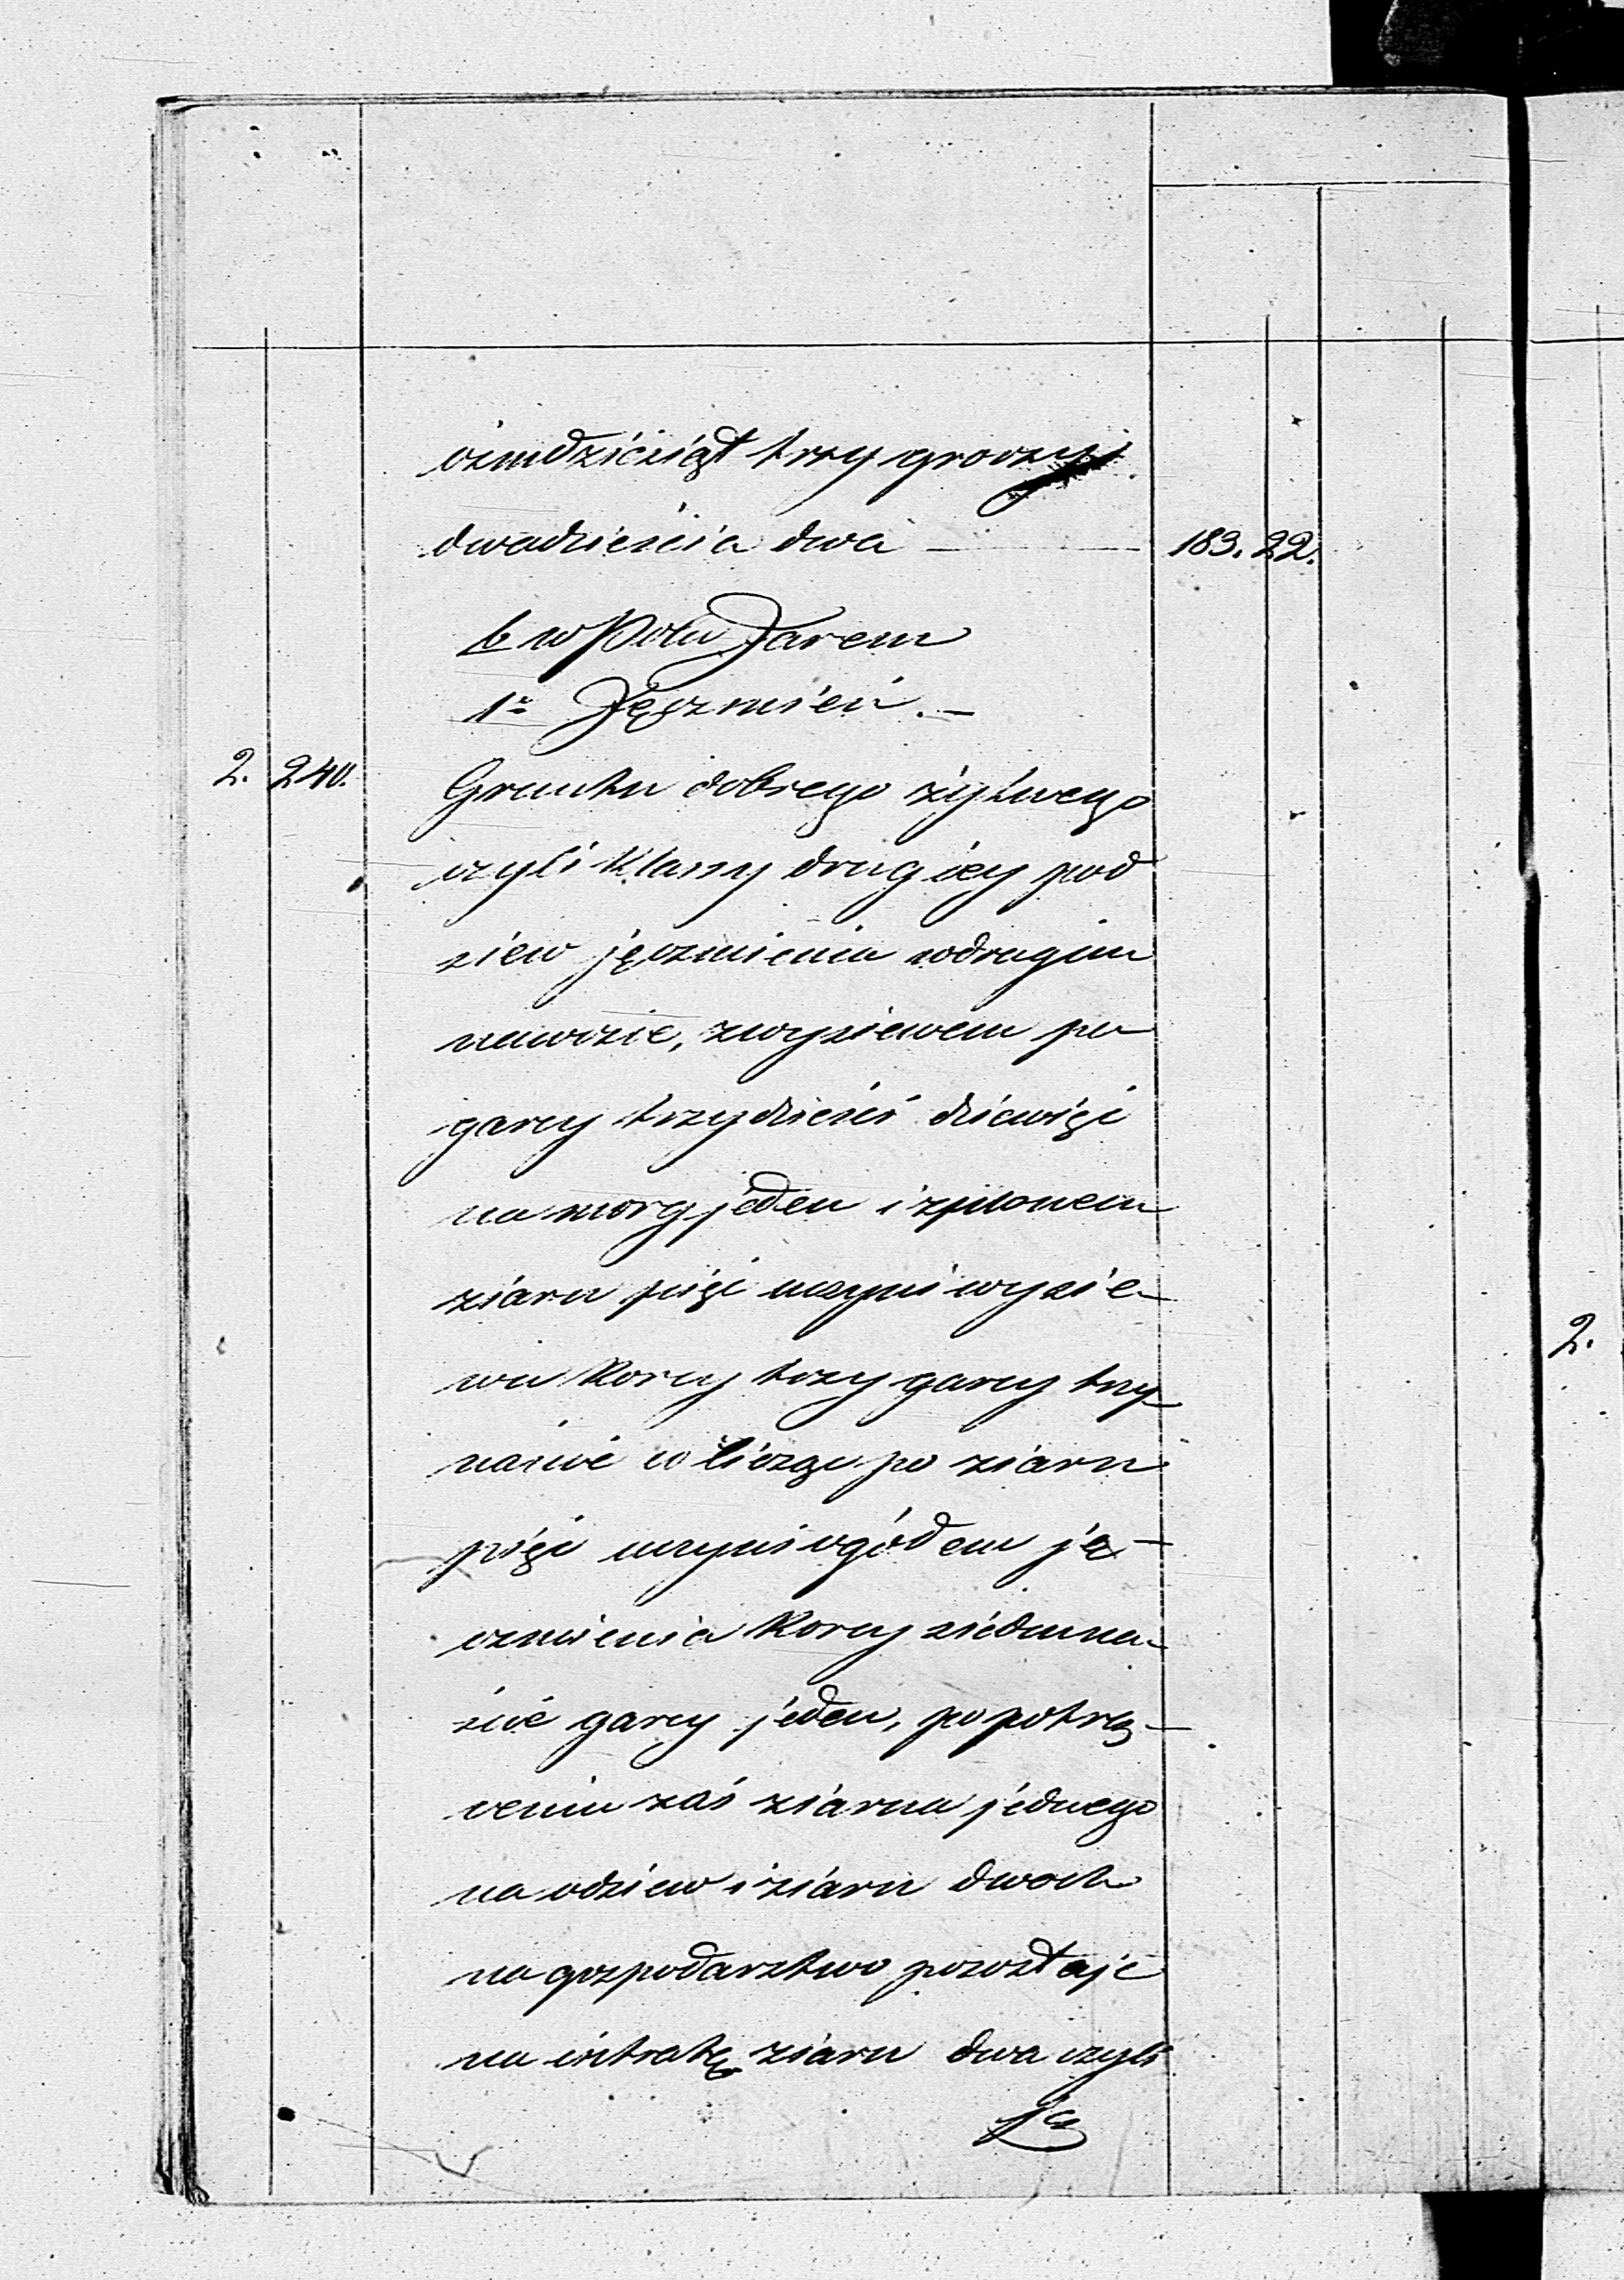 ośmdziesiąt trzy groszy
dwadzieścia dwa — 183. 22.
b w Polu Jarem
1° Jęczmień. —
2. 240. Gruntu dobrego żytniego
czyli Klassy drugiey pod
siew jęczmienia w drugim
nawozie, z wysiewem po
garcy trzydzieści dziewięć
na morg jeden i z plonem
ziarn pięć uczyni wysie-
wu Korcy trzy garcy trzy-
naście co licząc po ziarn
pięć uczyni ogółem ję-
czmienia Korcy siedmna-
ście garcy jeden, po potrą-
ceniu zaś ziarna jednego
na odsiew i ziarn dwoch
na gospodarztwo pozostaje
na intratę ziarn dwa czyli
2.